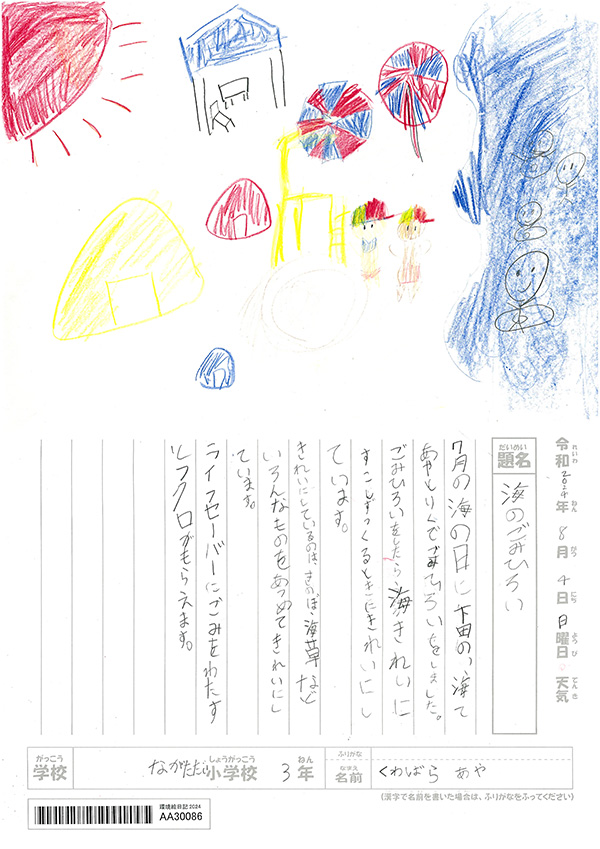 れいわ ねん がつ にち ようび てんき
令和2024年8月4日日曜日 天気
だいめい
題名 海のごみひろい
7月の海の日に下田の、海で
あやとりくでごみひろいをしました。
ごみひろいをしたら、海きれいに
すこしずつくるときにきれいにし
ています。
きれいにしているのは、海草など
いろんなものをあつめてきれいにし
ています。
ライフセーバーにごみをわたす
とフクロがもらえます。
がっこう しょうがっこう ねん ふりがな
学校 小学校 3年 なまえ 名前 くわばら あや
(漢字で名前を書いた場合は、ふりがなをふってください)
環境絵日記 2024
AA30086